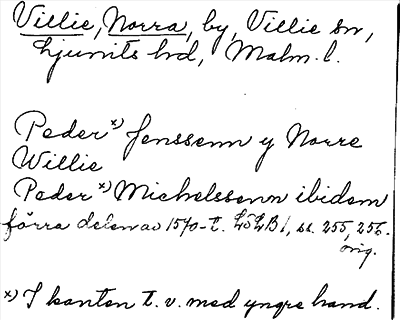 Villie, Norra, by, Villie sn,
Ljunits hd, Malm. l.
Peder x) Jenssenn y Norre
Willie
Peder x) Michelssenn ibidem
förra delen av 1570-t. LöLB 1, ss. 255, 256.
orig.
x) I kanten t. v. med yngre hand.